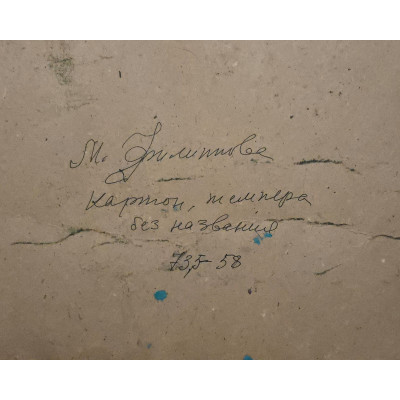 М. Филиппова
картон, темпера
без названия
73,5-58